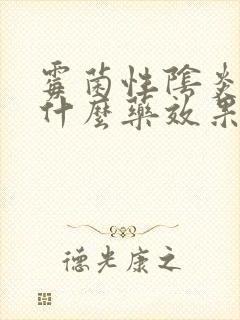 霉菌性陰炎
什麼藥效果
德光康之